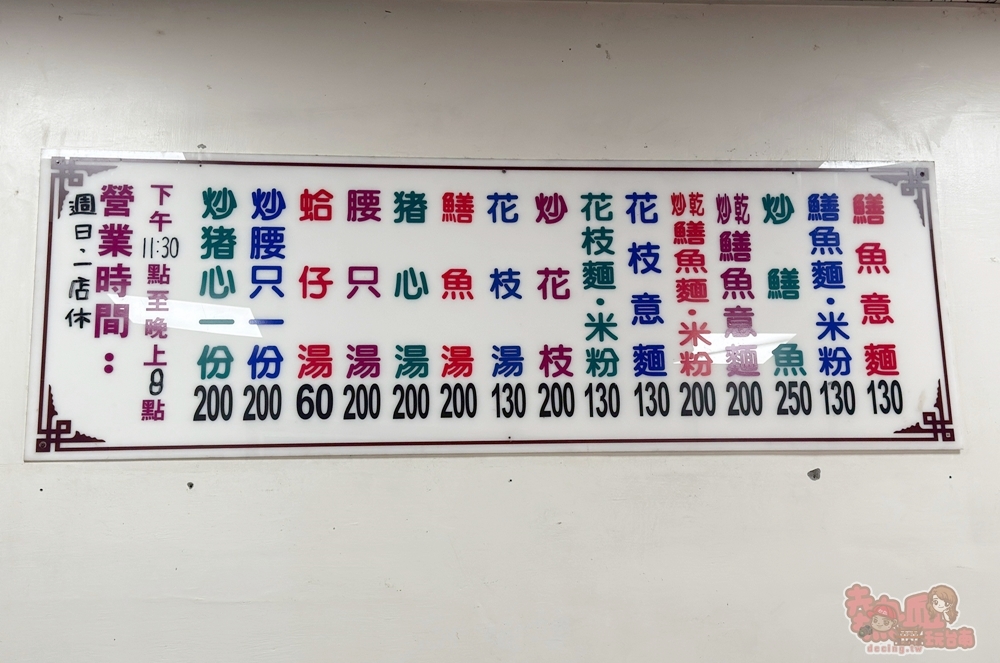 鱔魚意麵130
鱔魚麵·米粉130
炒鱔魚250
乾炒鱔魚意麵200
乾炒鱔魚麵·米粉200
花枝意麵130
花枝麵·米粉130
炒花枝200
花枝湯130
鱔魚湯200
猪心湯200
腰只湯200
蛤仔湯60
炒腰只一份200
炒猪心一份200
下午11:30點至晚上8點
營業時間:
週日、一店休
decing.tw